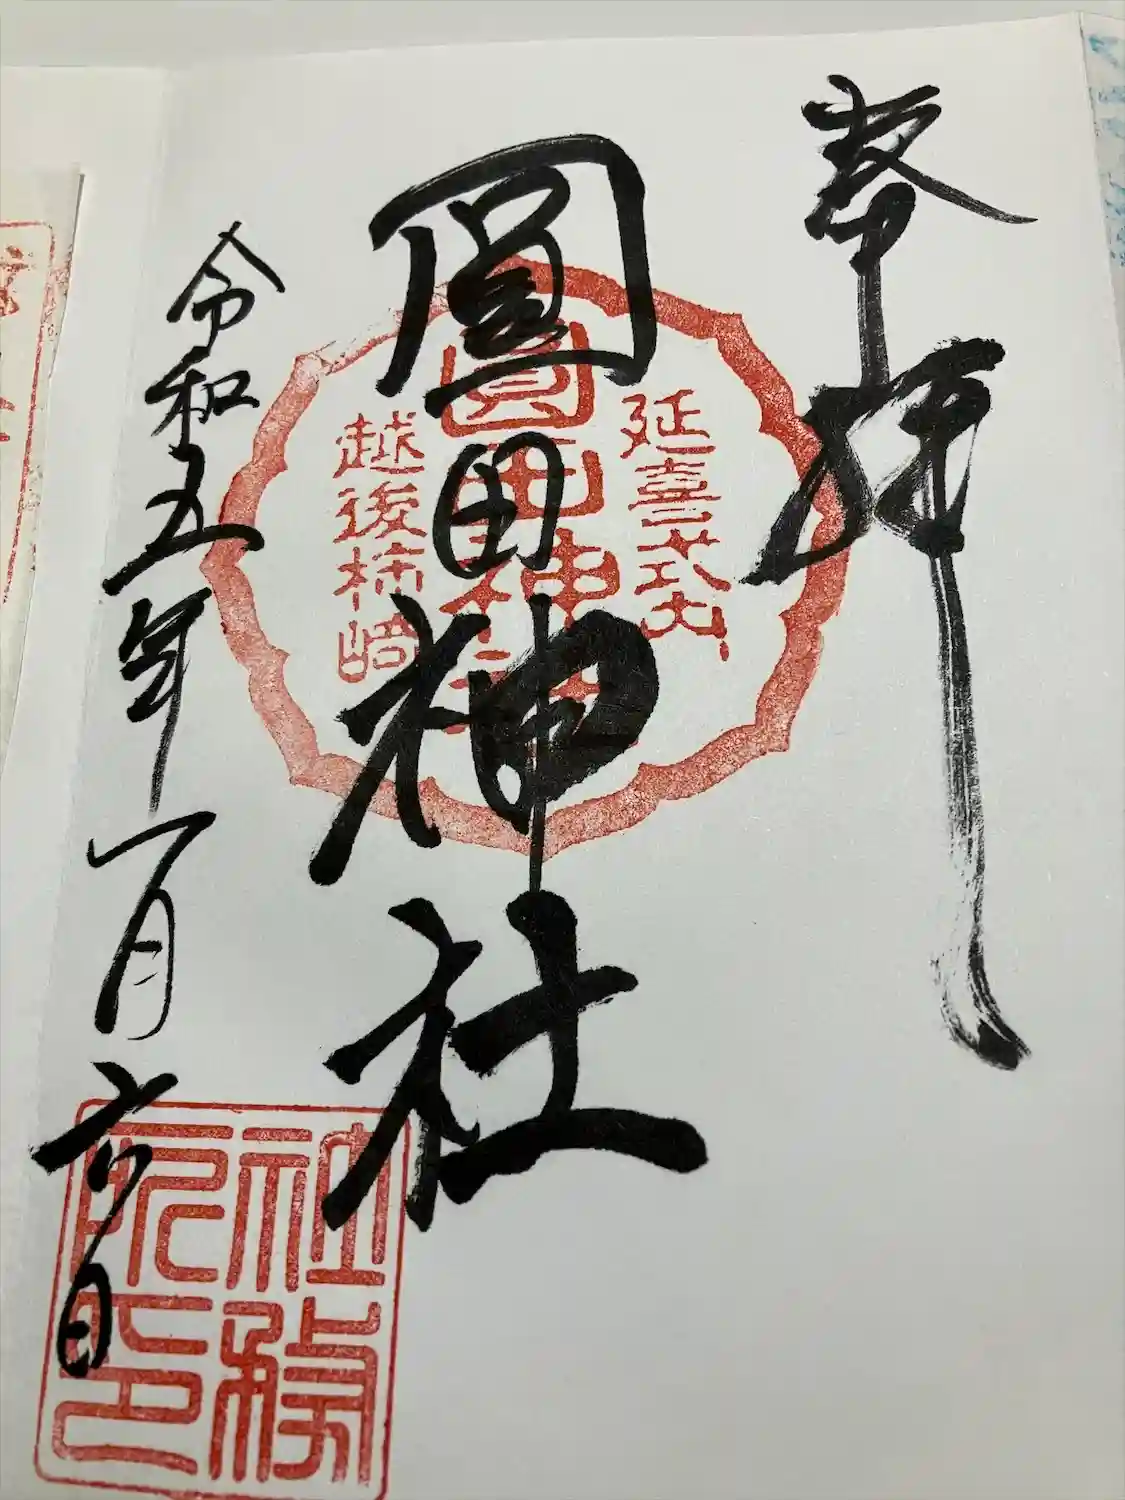 奉拝
延喜式内
圓田神社
圓田神社
越後柿崎
令和五年一月六日
社務
所印